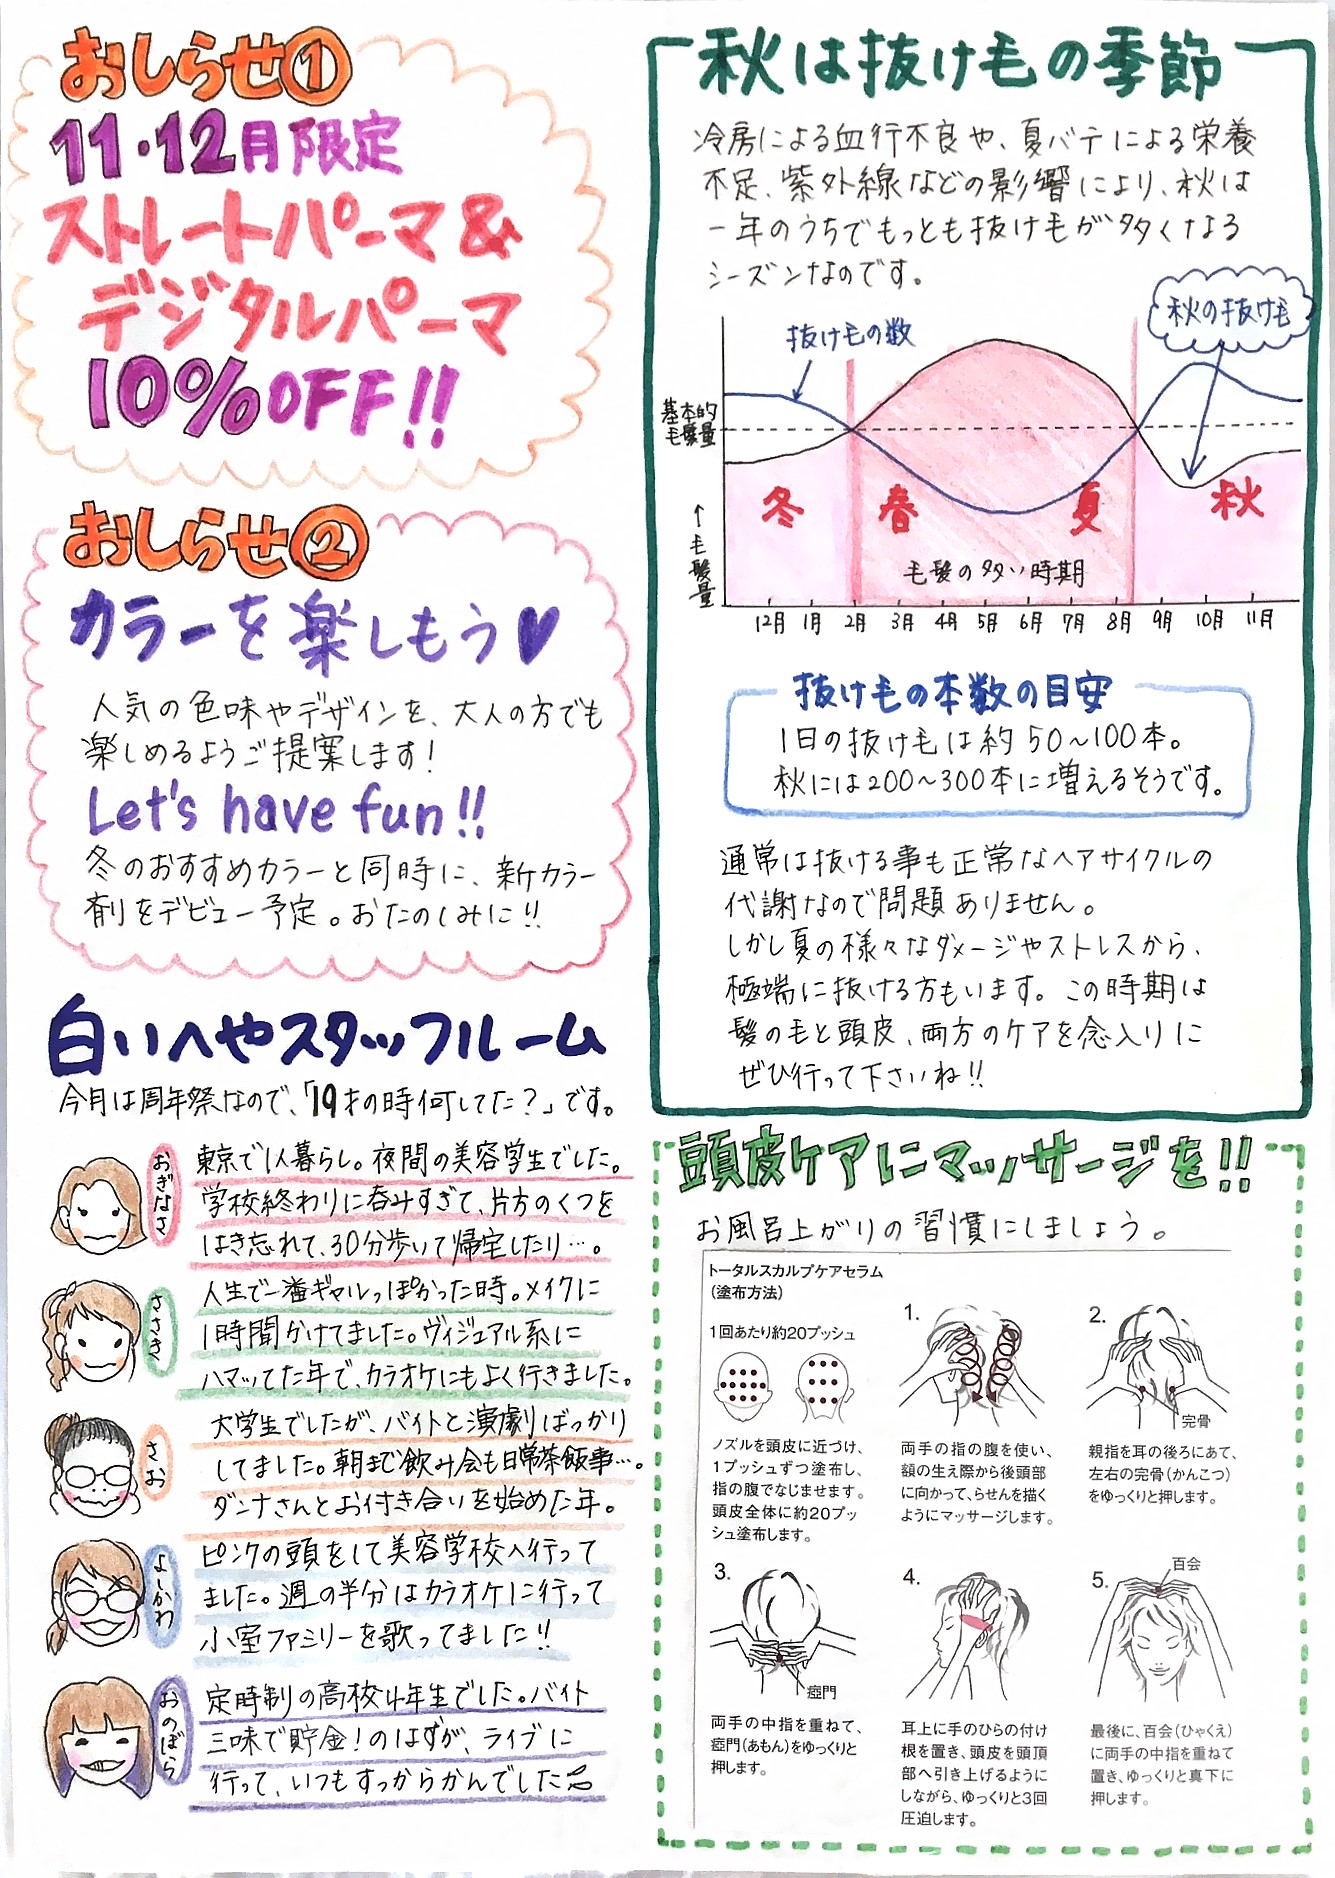 おしらせ①
11・12月限定
ストレートパーマ&
デジタルパーマ
10%OFF!!
おしらせ②
カラーを楽しもう♥
人気の色味やデザインを、大人の方でも
楽しめるようご提案します!
Let's have fun!!
冬のおすすめカラーと同時に、新カラー
剤をデビュー予定。おたのしみに!!
白いへやスタッフルーム
今月は周年祭なので、「19才の時何してた?」です。
おぎはさ
東京で1人暮らし。夜間の美容学生でした。
学校終わりに呑みすぎて、片方のくつを
はき忘れて、30分歩いて帰宅したり…。
ささき
人生で一番ギャルっぽかった時。メイクに
1時間かけてました。ヴィジュアル系に
ハマッてた年で、カラオケにもよく行きました。
さお
大学生でしたが、バイトと演劇ばっかり
してました。朝まで飲み会も日常茶飯事…。
ダンナさんとお付き合いを始めた年。
よしかわ
ピンクの頭をして美容学校へ行って
ました。週の半分はカラオケに行って
小室ファミリーを歌ってました!!
おのぼら
定時制の高校4年生でした。バイト
三味で貯金!のはずが、ライブに
行って、いつもすっからかんでした
秋は抜け毛の季節
冷房による血行不良や、夏バテによる栄養
不足、紫外線などの影響により、秋は
一年のうちでもっとも抜け毛が多くなる
シーズンなのです。
抜け毛の数
秋の抜け毛
基本的
毛髪量
冬
春
夏
秋
↑毛髪量
毛髪の多い時期
12月 1月 2月 3月 4月 5月 6月 7月 8月 9月 10月 11月
抜け毛の本数の目安
1日の抜け毛は約50~100本。
秋には200~300本に増えるそうです。
通常は抜ける事も正常なヘアサイクルの
代謝なので問題ありません。
しかし夏の様々なダメージやストレスから、
極端に抜ける方もいます。この時期は
髪の毛と頭皮、両方のケアを念入りに
ぜひ行って下さいね!!
頭皮ケアにマッサージを!!
お風呂上がりの習慣にしましょう。
トータルスカルプケアセラム
(塗布方法)
1回あたり約20プッシュ
ノズルを頭皮に近づけ、
1プッシュずつ塗布し、
指の腹でなじませます。
頭皮全体に約20プッ
シュ塗布します。
1.
両手の指の腹を使い、
額の生え際から後頭部
に向かって、らせんを描く
ようにマッサージします。
2.
完骨
親指を耳の後ろにあて、
左右の完骨(かんこつ)
をゆっくりと押します。
3.
瘂門
両手の中指を重ねて、
瘂門(あもん)をゆっくりと
押します。
4.
耳上に手のひらの付け
根を置き、頭皮を頭頂
部へ引き上げるように
しながら、ゆっくりと3回
圧迫します。
5.
百会
最後に、百会(ひゃくえ)
に両手の中指を重ねて
置き、ゆっくりと真下に
押します。